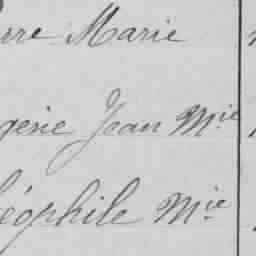 rre Marie
gerie Jean Mie
éophile Mie